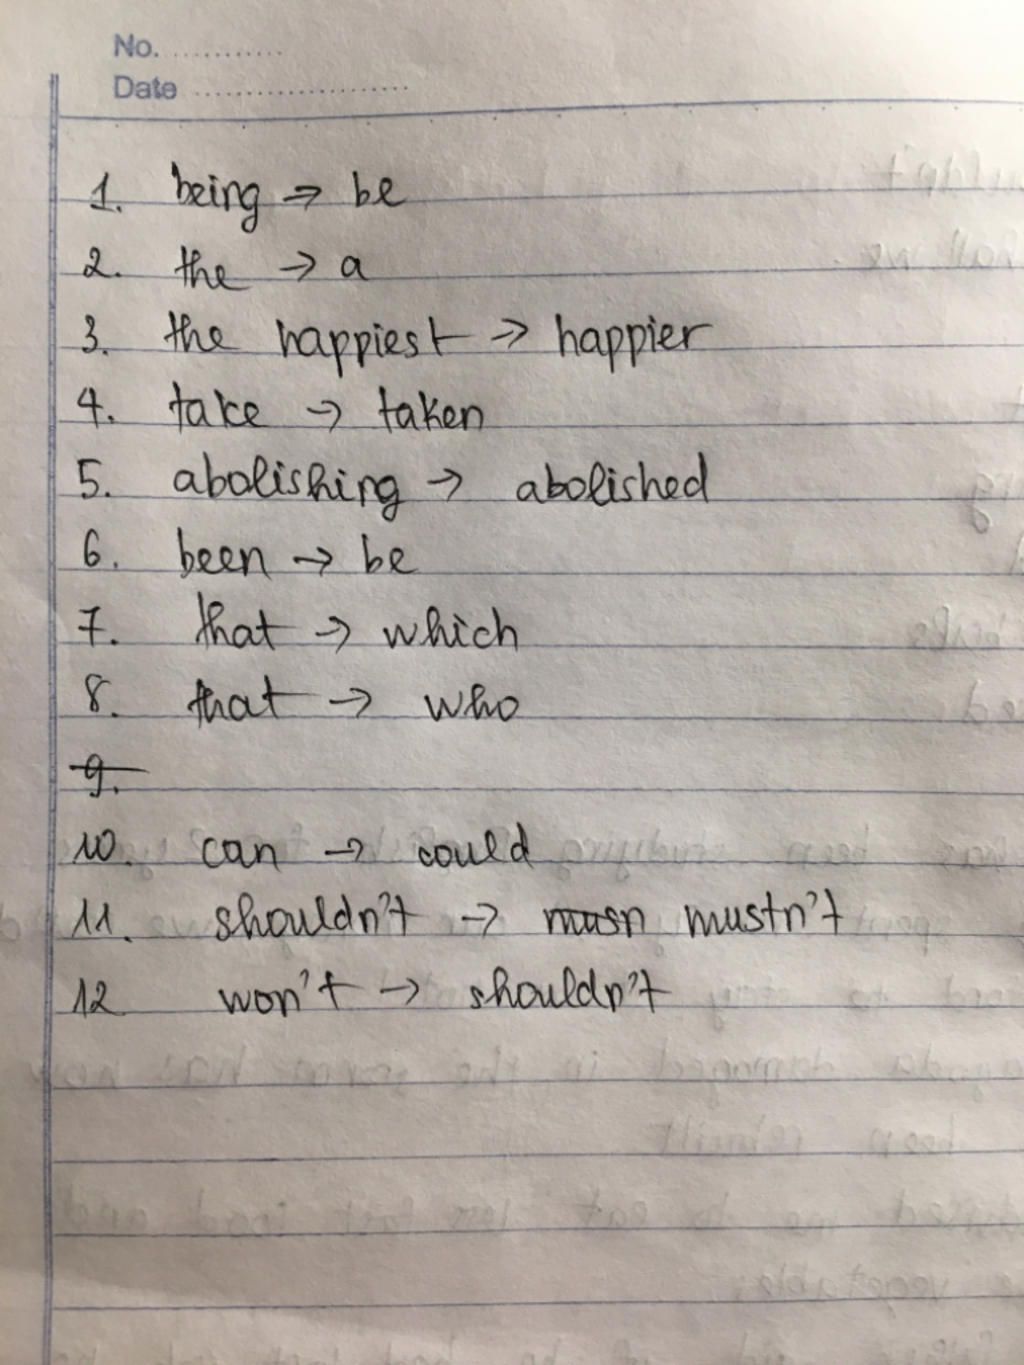 No. ............
Date ......................
1. being → be
2. the → a
3. the happiest → happier
4. take → taken
5. abolishing → abolished
6. been → be
7. that → which
8. that → who
9.
10. can → could
11. shouldn't → musn mustn't
12 won't → shouldn't